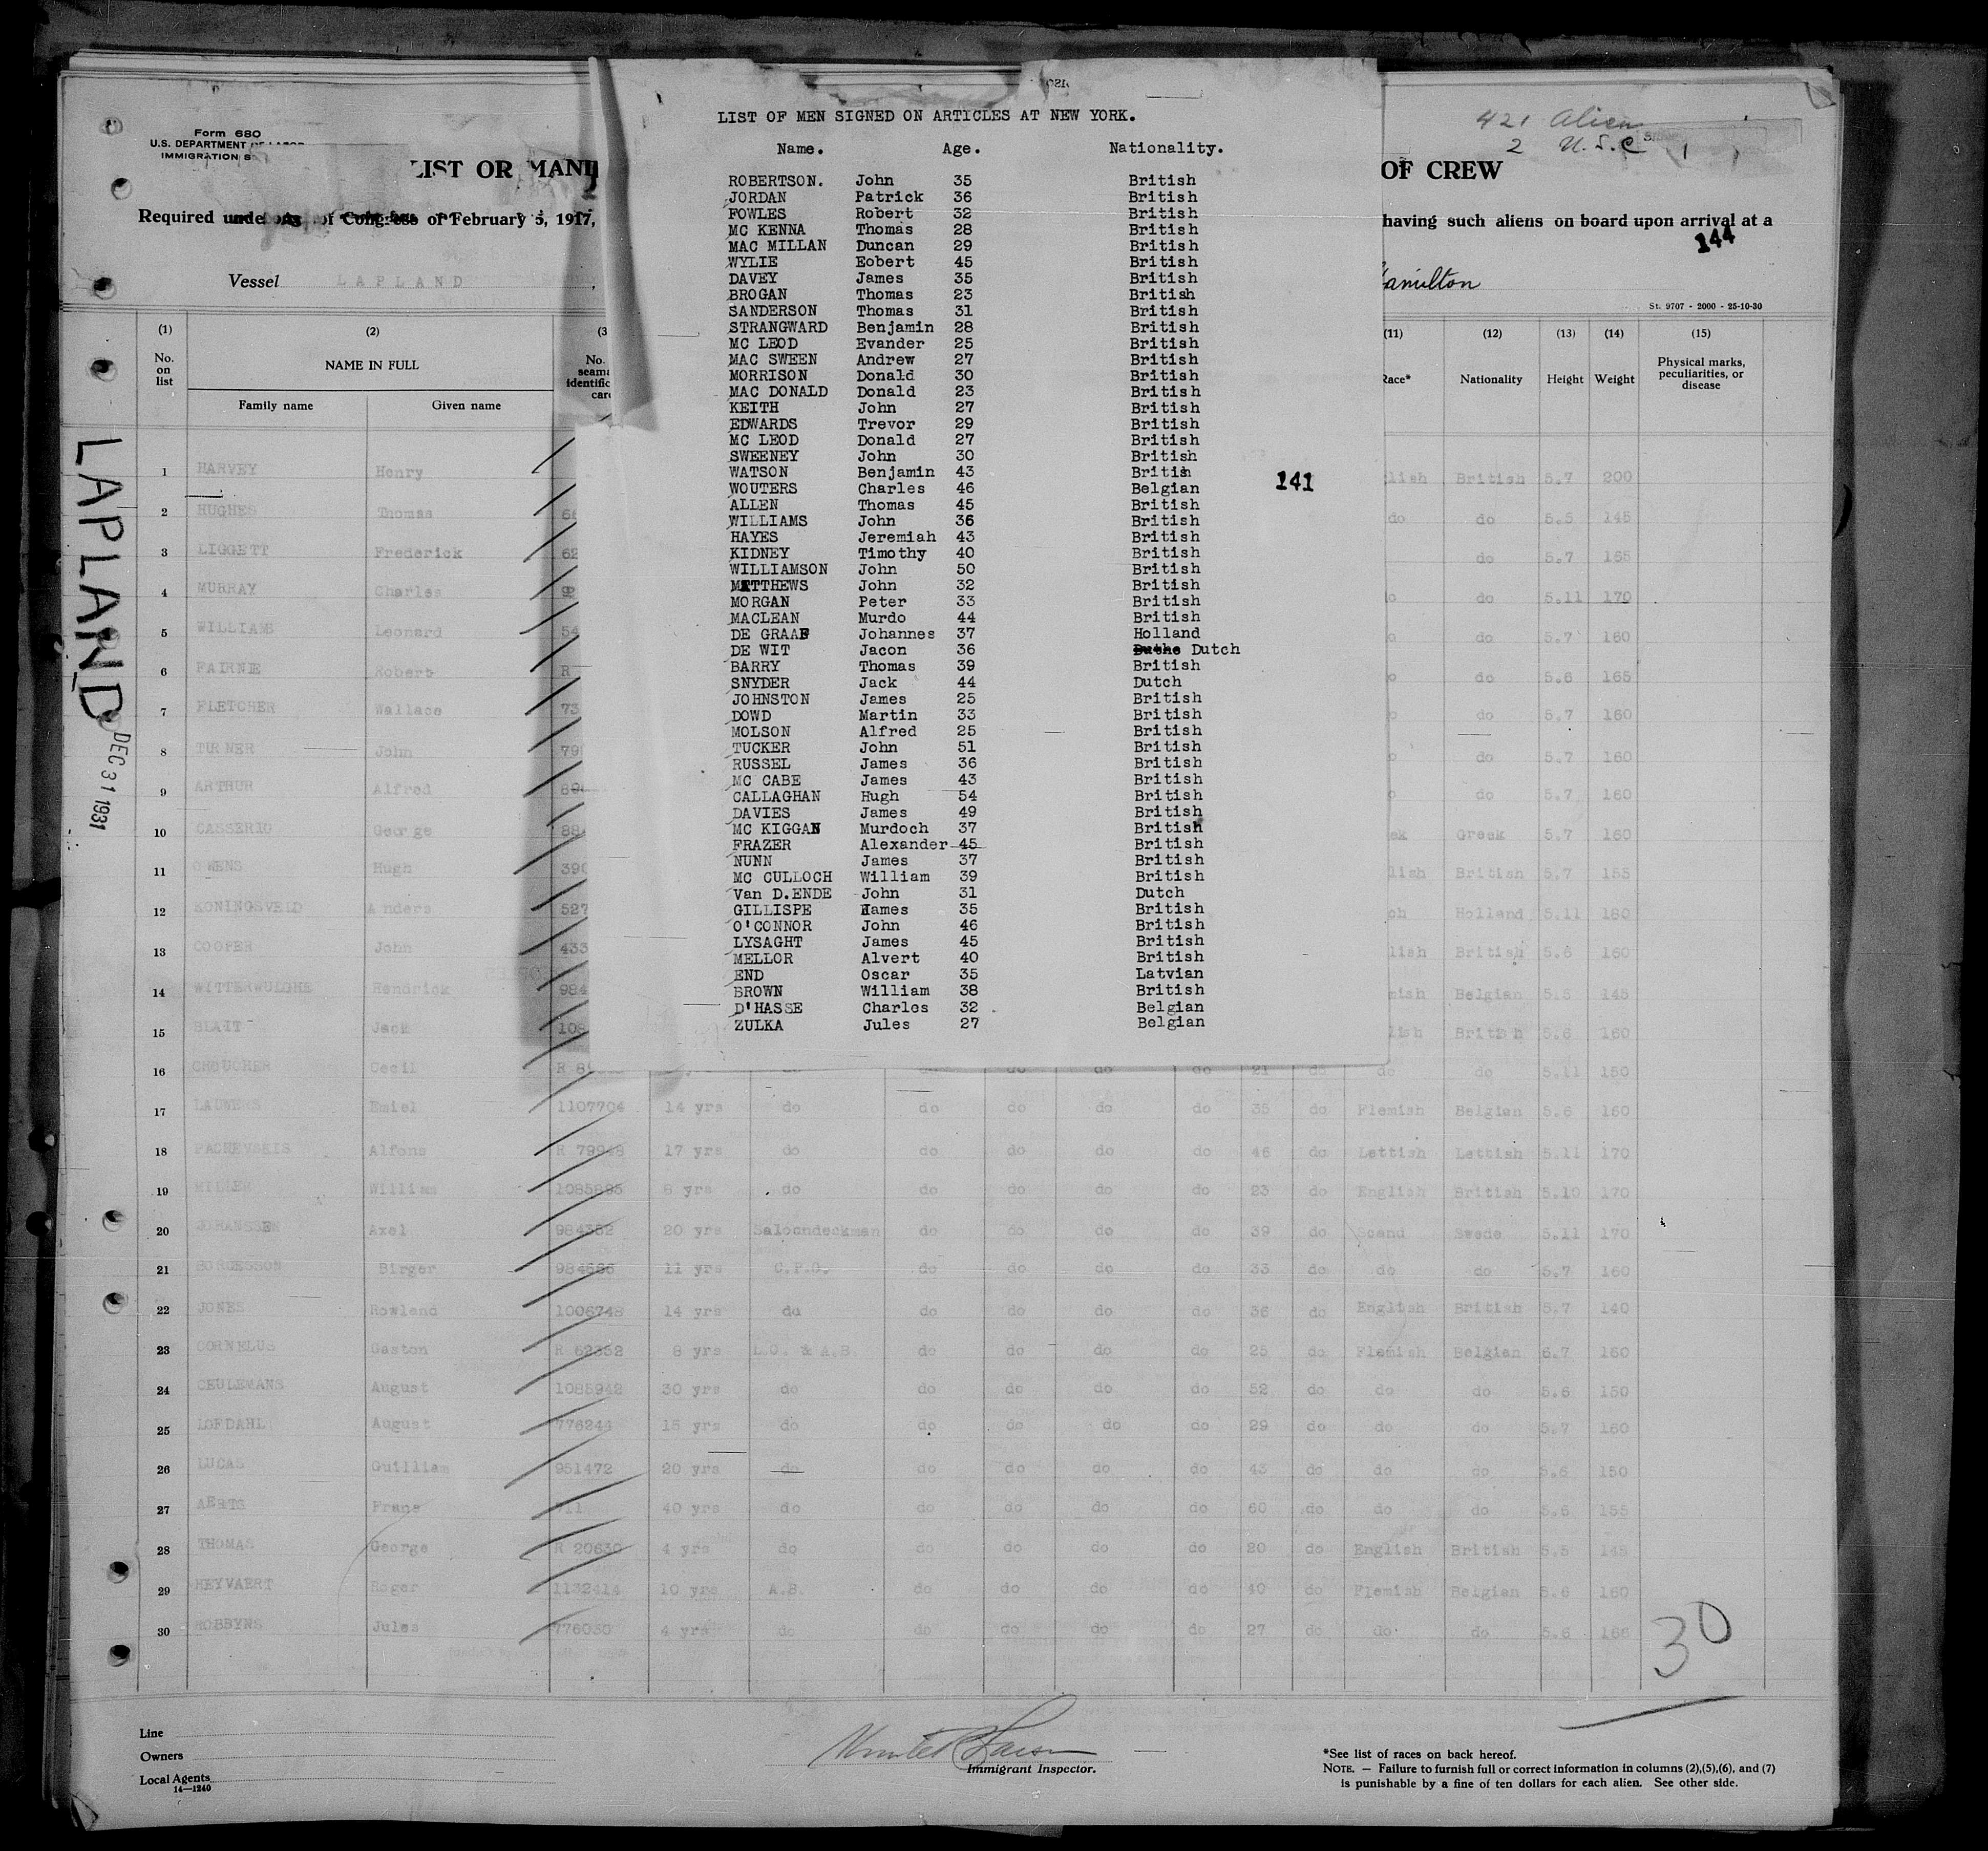 LIST OF MEN SIGNED ON ARTICLES AT NEW YORK.
Name. Age. Nationality.
ROBERTSON. John 35 British
JORDAN Patrick 36 British
FOWLES Robert 32 British
MC KENNA Thomas 28 British
MAC MILLAN Duncan 29 British
WYLIE Eobert 45 British
DAVEY James 35 British
BROGAN Thomas 23 British
SANDERSON Thomas 31 British
STRANGWARD Benjamin 28 British
MC LEOD Evander 25 British
MAC SWEEN Andrew 27 British
MORRISON Donald 30 British
MAC DONALD Donald 23 British
KEITH John 27 British
EDWARDS Trevor 29 British
MC LEOD Donald 27 British
SWEENEY John 30 British
WATSON Benjamin 43 British
WOUTERS Charles 46 Belgian 141
ALLEN Thomas 45 British
WILLIAMS John 36 British
HAYES Jeremiah 43 British
KIDNEY Timothy 40 British
WILLIAMSON John 50 British
MATTHEWS John 32 British
MORGAN Peter 33 British
MACLEAN Murdo 44 British
DE GRAAF Johannes 37 Holland
DE WIT Jacon 36 Dutch
BARRY Thomas 39 British
SNYDER Jack 44 Dutch
JOHNSTON James 25 British
DOWD Martin 33 British
MOLSON Alfred 25 British
TUCKER John 51 British
RUSSEL James 36 British
MC CABE James 43 British
CALLAGHAN Hugh 54 British
DAVIES James 49 British
MC KIGGAN Murdoch 37 British
FRAZER Alexander 45 British
NUNN James 37 British
MC CULLOCH William 39 British
Van D.ENDE John 31 Dutch
GILLISPE James 35 British
O'CONNOR John 46 British
LYSAGHT James 45 British
MELLOR Alvert 40 British
END Oscar 35 Latvian
BROWN William 38 British
D'HASSE Charles 32 Belgian
ZULKA Jules 27 Belgian
Form 680
U.S. DEPARTMENT
IMMIGRATION
LIST OR MANI OF CREW
421 Alien
2 U.S.C
Required under of Congress of February 5, 1917, having such aliens on board upon arrival at a
144
Vessel LAPLAND Hamilton
St. 9707 - 2000 - 25-10-30
(1) (2) (3 (11) (12) (13) (14) (15)
No. on list NAME IN FULL No. Race* Nationality Height Weight Physical marks, peculiarities, or disease
Family name Given name
LAPLAND
DEC 31 1931
1 HARVEY Henry British 5.7 200
2 HUGHES Thomas do do 5.5 145
3 LIGGETT Frederick 62 do 5.7 165
4 MURRAY Charles do 5.11 170
5 WILLIAMS Leonard 54 do 5.7 160
6 FAIRNIE Robert R do 5.6 165
7 FLETCHER Wallace 73 do 5.7 160
8 TURNER John 79 do 5.7 160
9 ARTHUR Alfred do 5.7 160
10 CASSERIO George 88 Greek 5.7 160
11 OWENS Hugh 390 British 5.7 155
12 KONINGSVELD Anders 527 Holland 5.11 180
13 COOPER John 433 British 5.6 160
14 WITTERWULGHE Hendrick 984 Belgian 5.5 145
15 BLAIT Jack 108 British 5.6 160
16 CROUCHER Cecil R 8 do do do 21 do do do 5.11 150
17 LAUWERS Emiel 1107704 14 yrs do do do do do 35 do Flemish Belgian 5.6 160
18 PACHEVSKIS Alfons R 79948 17 yrs do do do do do 46 do Lettish Lettish 5.11 170
19 MILLER William 1085895 8 yrs do do do do do 23 do English British 5.10 170
20 JOHANSSEN Axel 984352 20 yrs Saloondeckman do do do do 39 do Scand Swede 5.11 170
21 BORGESSON Birger 984686 11 yrs C.P.O. do do do do 33 do do do 5.7 160
22 JONES Rowland 1006748 14 yrs do do do do do 36 do English British 5.7 140
23 CORNELUS Gaston R 62352 8 yrs L.O. & A.B. do do do do 25 do Flemish Belgian 5.7 160
24 CEULEMANS August 1085942 30 yrs do do do do do 52 do do do 5.6 150
25 LOFDAHL August 776244 15 yrs do do do do do 29 do do do 5.7 160
26 LUCAS Guilliam 951472 20 yrs do do do do do 43 do do do 5.6 150
27 AERTS Frans 40 yrs do do do do do 60 do do do 5.6 155
28 THOMAS George R 20630 4 yrs do do do do do 20 do English British 5.5 145
29 HEYVAERT Roger 1132414 10 yrs A.B. do do do do 40 do Flemish Belgian 5.6 160
30 ROBBYNS Jules 776030 4 yrs do do do do do 27 do do do 5.6 166
30
Line
Owners
Local Agents
14—1240
Immigrant Inspector.
*See list of races on back hereof.
NOTE. — Failure to furnish full or correct information in columns (2),(5),(6), and (7)
is punishable by a fine of ten dollars for each alien. See other side.